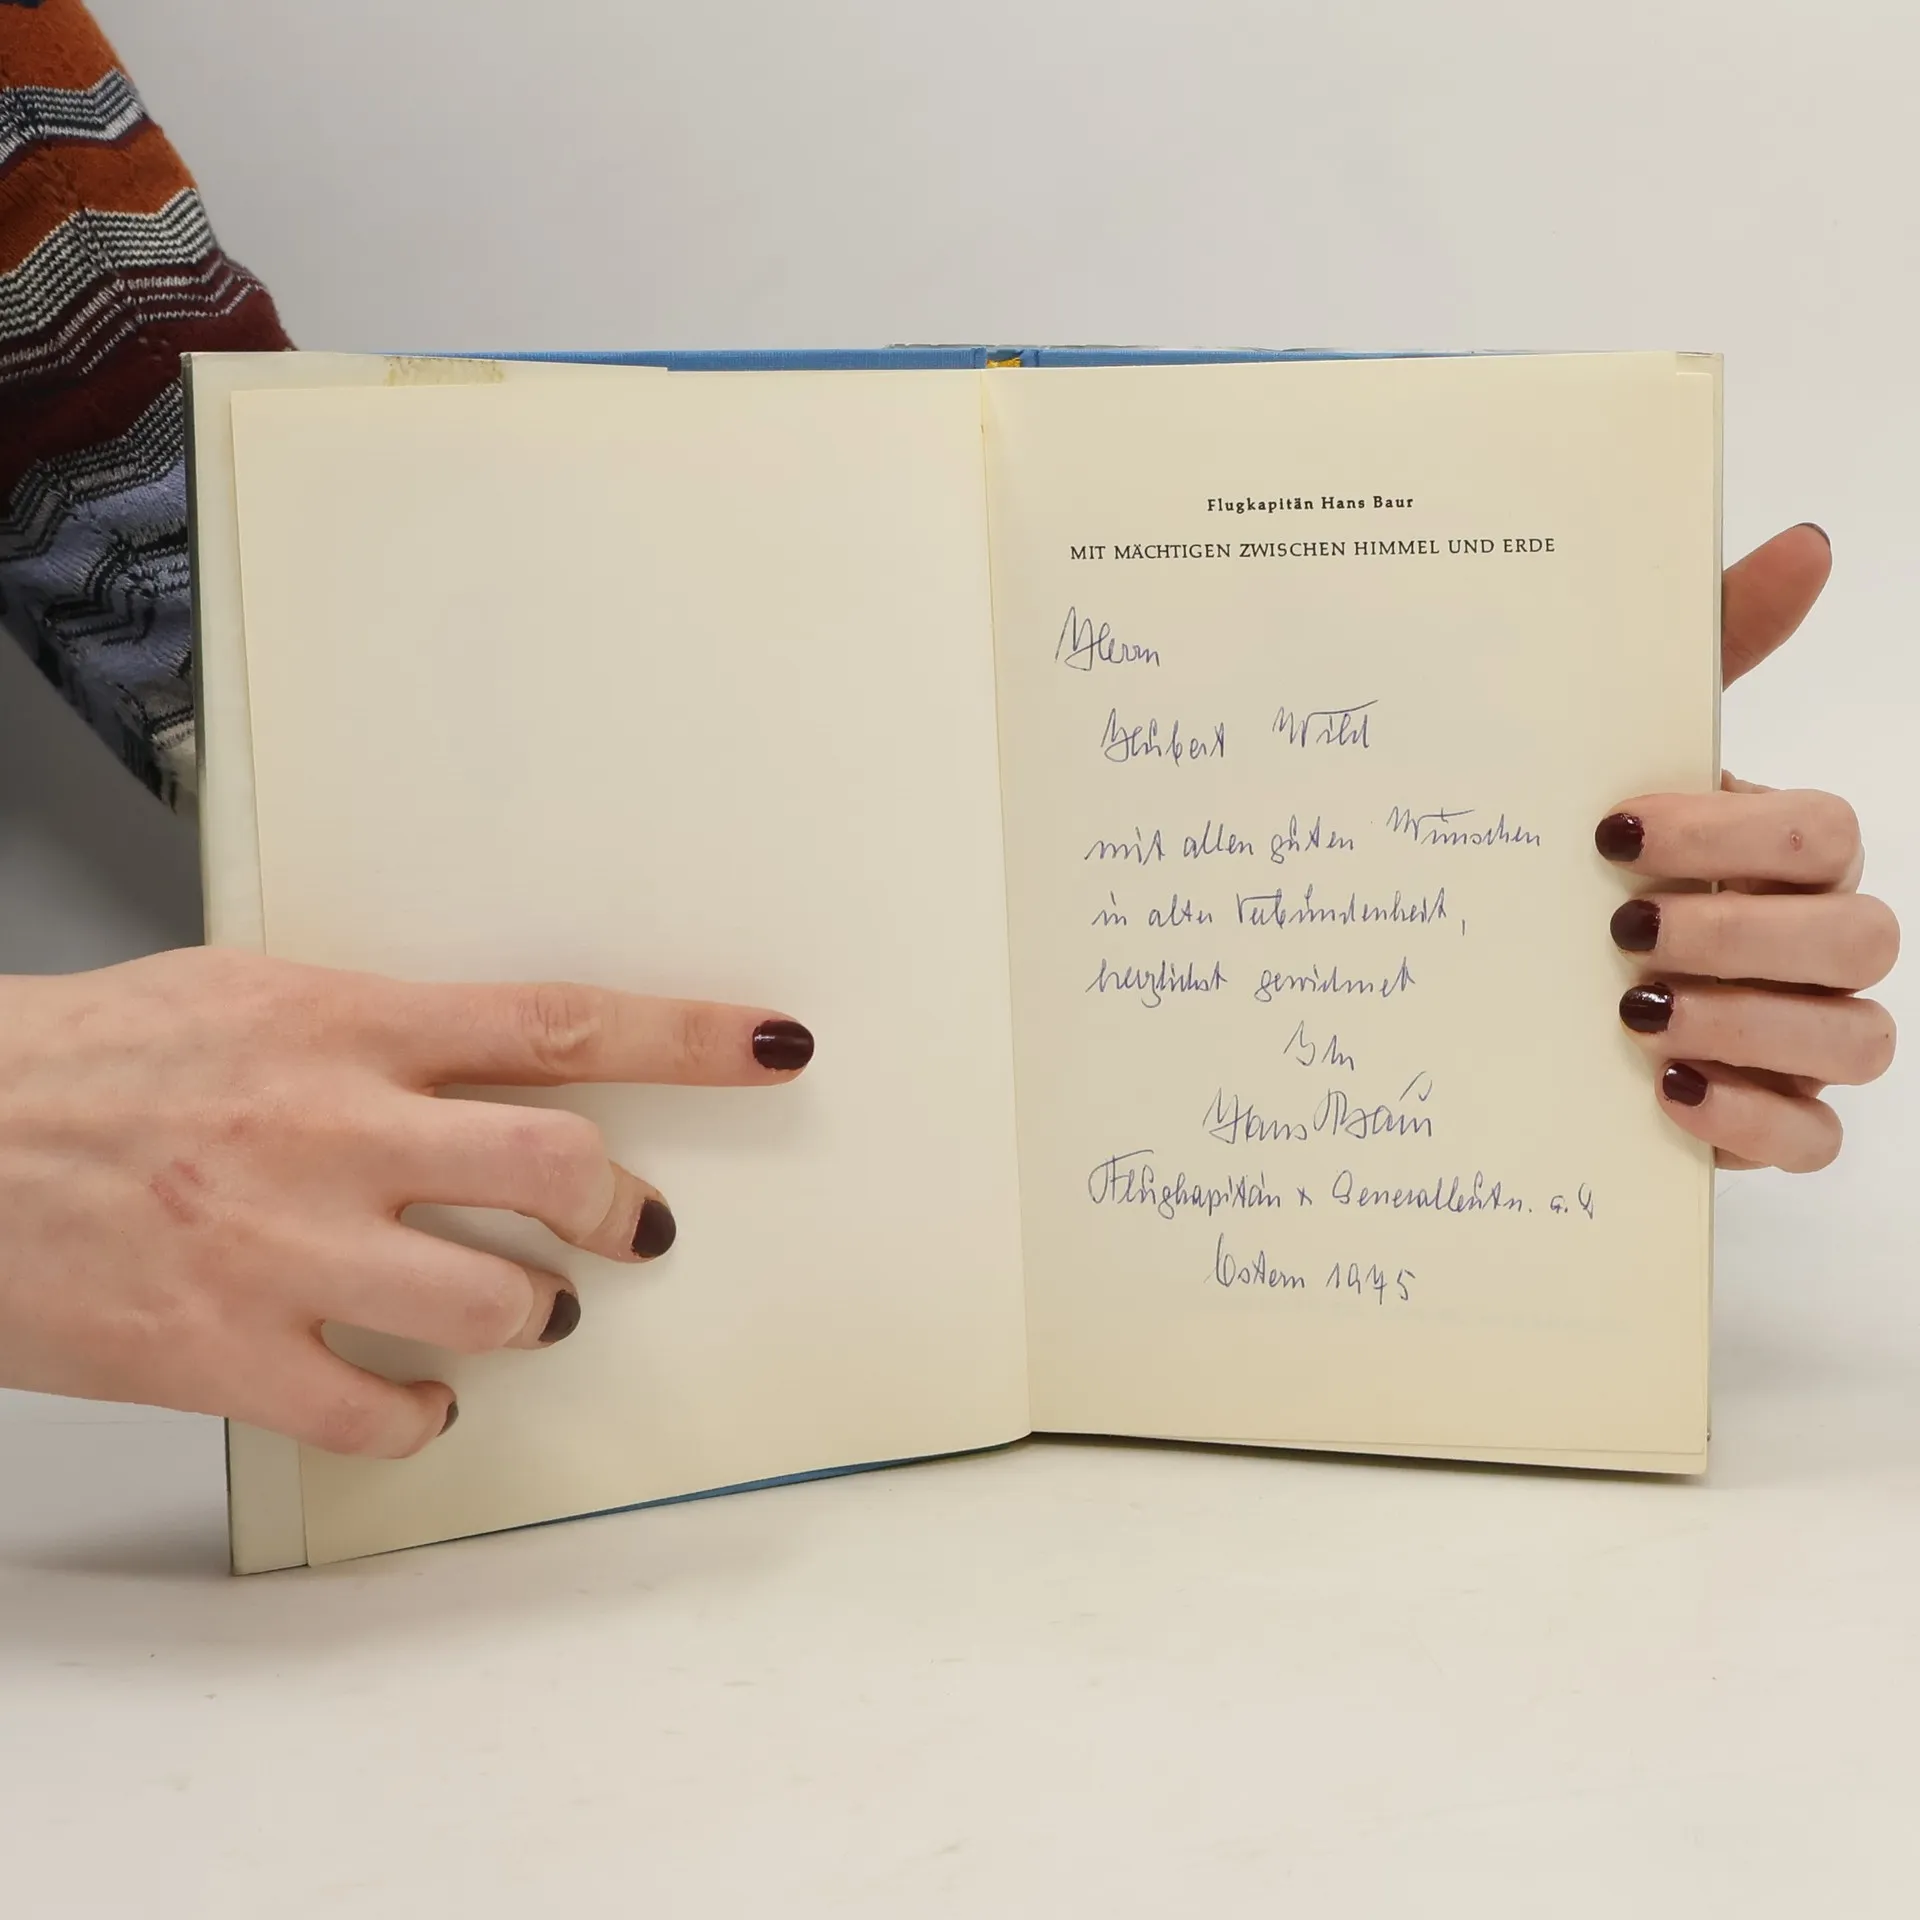 Flugkapitän Hans Baur
MIT MÄCHTIGEN ZWISCHEN HIMMEL UND ERDE
Herrn
Hubert Wild
mit allen guten Wünschen
in alter Verbundenheit,
herzlichst gewidmet
Ihr
Hans Baur
Flugkapitän + Generalleutn. a. D
Ostern 1975